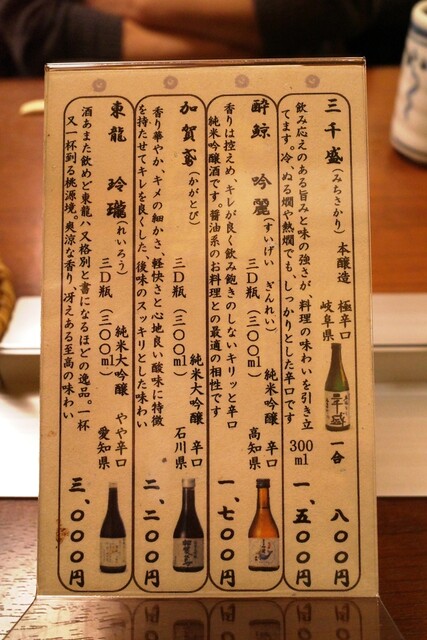 三千盛(みちさかり) 本醸造 極辛口
岐阜県
飲み応えのある旨みと味の強さが、料理の味わいを引き立
てます。冷、ぬる燗や熱燗でも、しっかりとした辛口です
一合 八〇〇円
300ml 一、五〇〇円
酔鯨 吟麗(すいげい ぎんれい) 純米吟醸 辛口
三D瓶(三〇〇ml) 高知県
香りは控えめ、キレが良く飲み飽きのしないキリッと辛口
純米吟醸酒です。醤油系のお料理との最適の相性です
一、七〇〇円
加賀鳶(かがとび) 純米大吟醸 辛口
三D瓶(三〇〇ml) 石川県
香り華やか、キメの細かさ、軽快さと心地良い酸味に特徴
を持たせてキレを良くした、後味のスッキリとした味わい
二、二〇〇円
東龍 玲瓏(れいろう) 純米大吟醸 やや辛口
三D瓶(三〇〇ml) 愛知県
酒あまた飲めど東龍ハ又格別と書になるほどの逸品。一杯
又一杯到る桃源境。爽涼な香り、冴えある至高の味わい
三、〇〇〇円